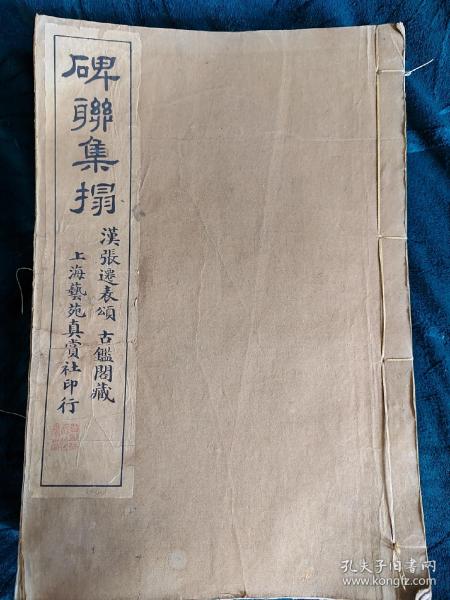 碑聯集搨
漢張遷表頌 古鑑閣藏
上海藝苑真賞社印行
孔夫子旧书网
www.kongfz.com